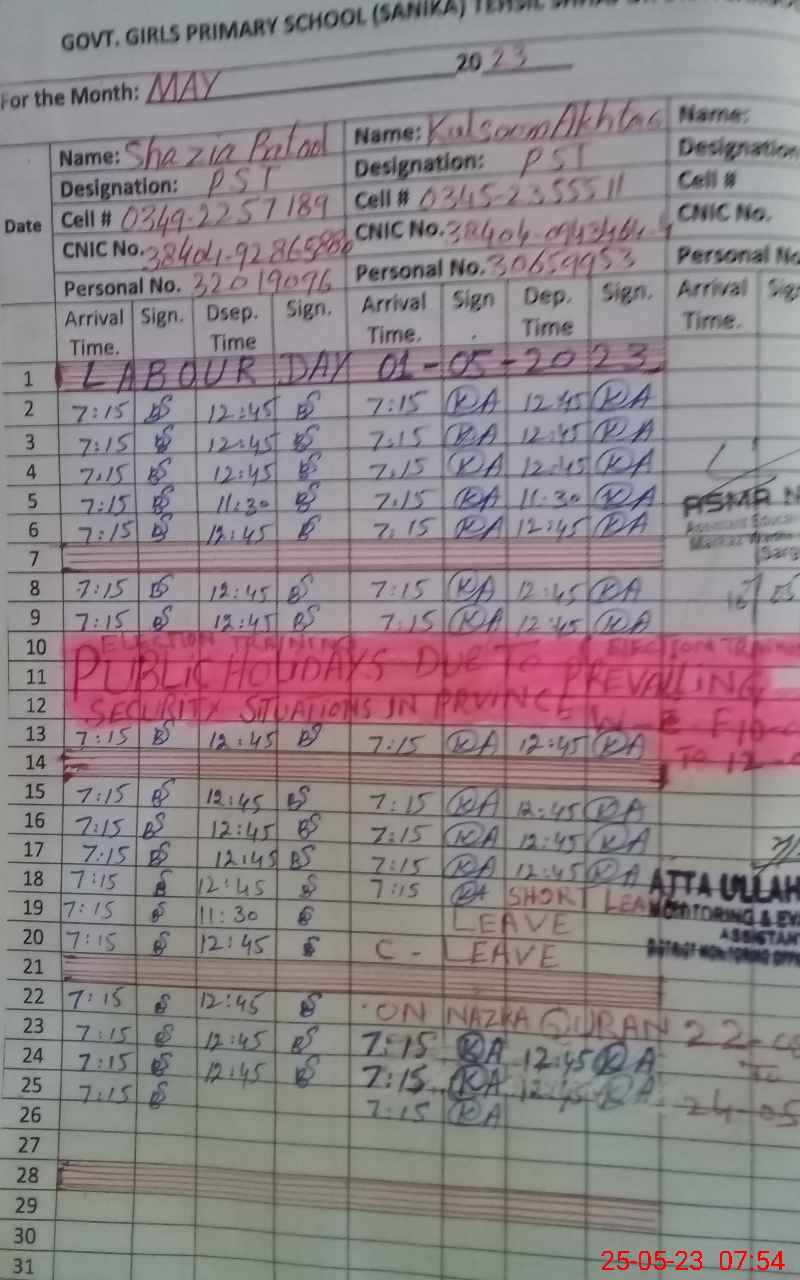 GOVT. GIRLS PRIMARY SCHOOL (SANIKA) TEHSIL
For the Month: MAY 2023
Name: Shazia Name: Kulsoom Akhtar Name:
Designation: PST Designation: PST Designation
Cell # 0349-2257189 Cell # 0345-2355511 Cell #
Date
CNIC No. CNIC No. CNIC No.
Personal No. 32019096 Personal No. 30659953 Personal No
Arrival Time. Sign. Dsep. Time Sign. Arrival Time. Sign . Dep. Time Sign. Arrival Time. Sig
1 LABOUR DAY 01-05-2023
2 7:15 BS 12:45 BS 7:15 KA 12:45 KA
3 7:15 BS 12:45 BS 7:15 KA 12:45 KA
4 7:15 BS 12:45 BS 7:15 KA 12:45 KA
5 7:15 BS 11:30 BS 7:15 KA 11:30 KA
ASMA N
6 7:15 BS 12:45 BS 7:15 KA 12:45 KA
7
8 7:15 BS 12:45 BS 7:15 KA 12:45 KA
9 7:15 BS 12:45 BS 7:15 KA 12:45 KA
10 ELECTION TRAINING ELECTION TRAINING
11 PUBLIC HOLIDAYS DUE TO PREVAILING
12 SECURITY SITUATIONS IN PRVINCE W-E-F 10-
13 7:15 BS 12:45 BS 7:15 KA 12:45 KA
TO 12-
14
15 7:15 BS 12:45 BS 7:15 KA 12:45 KA
16 7:15 BS 12:45 BS 7:15 KA 12:45 KA
17 7:15 BS 12:45 BS 7:15 KA 12:45 KA
ATTA ULLAH
18 7:15 BS 12:45 BS 7:15 KA SHORT LEAVE
MONITORING & EV
19 7:15 BS 11:30 BS LEAVE
ASSISTAN
20 7:15 BS 12:45 BS C - LEAVE
DISTRICT MONITORING OFF
21
22 7:15 BS 12:45 BS ON NAZRA QURAN 22-
23 7:15 BS 12:45 BS 7:15 KA 12:45 KA
To
24 7:15 BS 12:45 BS 7:15 KA 12:45 KA
24-05
25 7:15 BS 7:15 KA
26
27
28
29
30
31
25-05-23 07:54